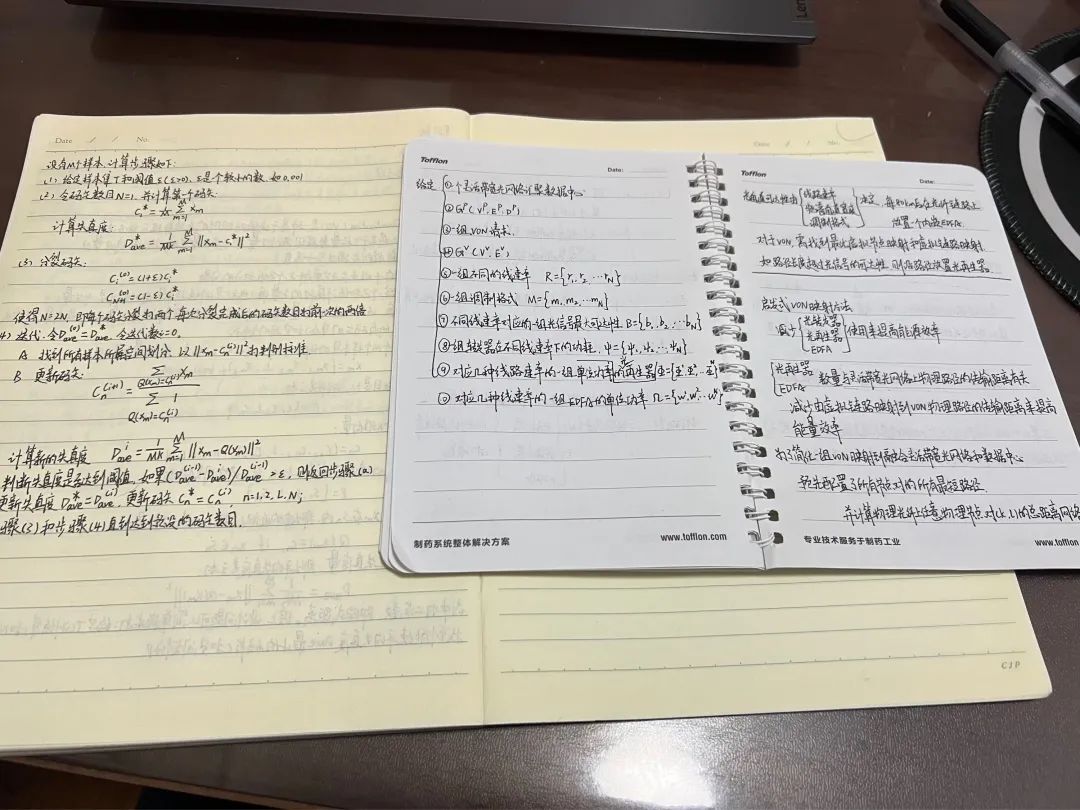 Lenovo
Date / / No.
设有M个样本,计算步骤如下:
(1) 给定样本集T和阈值ε(ε>0), ε是个较小的数,如0.001
(2) 令码矢数目N=1,并计算第一个码矢:
C₁* = 1/M Σ_{m=1}^{M} x_m
计算失真度:
D_ave* = 1/Mk Σ_{m=1}^{M} ||x_m-c₁*||²
(3) 分裂码矢:
C_i^(0) = (1+ε)c_i*
C_{N+i}^(0) = (1-ε)c_i*
使得N=2N,即每个码矢分裂为两个,每次分裂完成后的码矢数目为前一次的两倍
(4) 迭代:令D_ave^(0)=D_ave*,令迭代数i=0.
A 找到所有样本所属空间划分,以||x_m-C_n^(i)||²为判别标准
B 更新码矢:
C_n^(i+1) = Σ_{Q(x_m)=c_n^(i)} x_m / Σ_{Q(x_m)=c_n^(i)} 1
计算新的失真度 D_ave^i = 1/Mk Σ_{m=1}^{M} ||x_m-Q(x_m)||²
判断失真度是否达到阈值,如果(D_ave^(i-1)-D_ave^i)/D_ave^(i-1)>ε,则返回步骤(a)
更新失真度 D_ave*=D_ave^(i),更新码矢 C_n*=C_n^(i) n=1,2,L,N;
骤(3)和步骤(4)直到达到预设的码矢数目.
CJP
Tofflon
Date:
给定
① 个灵活带宽光网络汇聚数据中心
② G^P(V^P, E^P, D^P)
③ 一组VON请求.
④ G^V(V^V, E^V)
⑤ 一组不同的线速率 R={r₁,r₂,…r_N}
⑥ 一组调制格式 M={m₁,m₂…m_N}
⑦ 不同线速率对应的一组光信号最大可达性B={b₁,b₂,…b_N}
⑧ 一组转发器在不同线速率下的功耗,ψ={ψ₁,ψ₂,…ψ_N}
⑨ 对应几种线路速率的一组单位功率的光再生器
⑩ 对应几种线速率的一组EDFA的单位功率 Ω={w¹,w²…w^N}
制药系统整体解决方案 www.tofflon.com
Tofflon
Date:
光通道可达性由
线路速率
调制格式
决定
每80km在光纤链路上
放置一个内联EDFA
对于VON,需找到最优虚拟节点映射和虚拟链路映射
如路径长度超过光信号的可达性,则沿路径放置光再生器
启发式VON映射方法
减少
光转发器
光再生器
EDFA
使用来提高能源效率
光再生器
EDFA
数量与灵活带宽光网络上物理路径的传输距离有关
减少由虚拟链路映射到VON物理路径的传输距离来提高
能量效率
为了简化一组VON映射到融合灵活带宽光网络和数据中心
预先配置了所有节点对的所有最短路径.
并计算物理光纤上任意物理节点对(k,l)的总距离网络
专业技术服务于制药工业 www.toffl